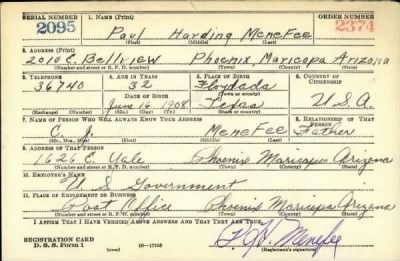 SERIAL NUMBER 1. NAME (Print) ORDER NUMBER
2095 Paul Harding MeneFee 2374
(First) (Middle) (Last)
2. ADDRESS (Print)
2010 E. Bellview Phoenix, Maricopa Arizona
(Number and street or R. F. D. number) (Town) (County) (State)
3. TELEPHONE 4. AGE IN YEARS 5. PLACE OF BIRTH 6. COUNTRY OF CITIZENSHIP
36740 32 Floydada
DATE OF BIRTH (Town or county)
June 16 1908 Texas U.S.A.
(Exchange) (Number) (Mo.) (Day) (Yr.) (State or country)
7. NAME OF PERSON WHO WILL ALWAYS KNOW YOUR ADDRESS 8. RELATIONSHIP OF THAT PERSON
C. J. MeneFee Father
(Mr., Mrs., Miss) (First) (Middle) (Last)
9. ADDRESS OF THAT PERSON
1626 E. Yale Phoenix Maricopa Arizona
(Number and street or R. F. D. number) (Town) (County) (State)
10. EMPLOYER'S NAME
U S Government
11. PLACE OF EMPLOYMENT OR BUSINESS
Post Office Phoenix Maricopa Arizona
(Number and street or R. F. D. number) (Town) (County) (State)
I AFFIRM THAT I HAVE VERIFIED ABOVE ANSWERS AND THAT THEY ARE TRUE.
REGISTRATION CARD
D. S. S. Form 1 (over) P. H. Menefee
(Registrant's signature)